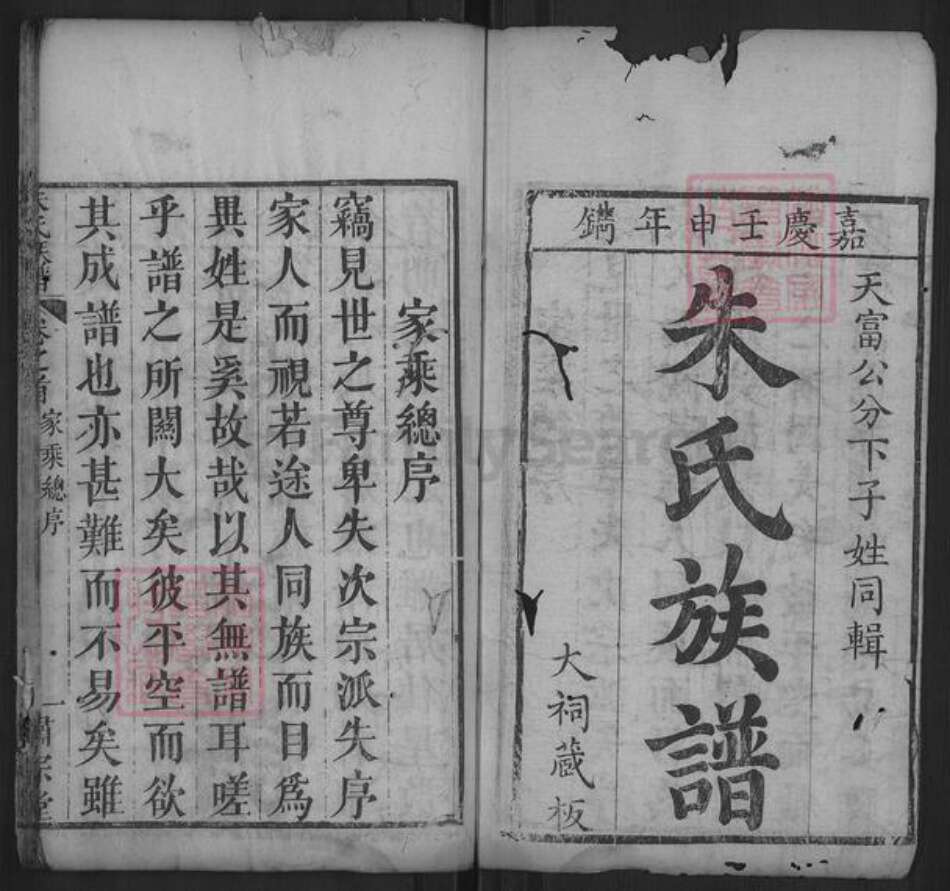 嘉慶壬申年鐫
天富公分下子姓同輯
朱氏族譜
大祠藏板
家乘總序
竊見世之尊卑失次宗派失序
家人而視若途人同族而目為
異姓是奚故哉以其無譜耳嗟
乎譜之所關大矣彼平空而欲
其成譜也亦甚難而不易矣雖
朱氏族譜 卷之首 家乘總序 一
FamilySearch